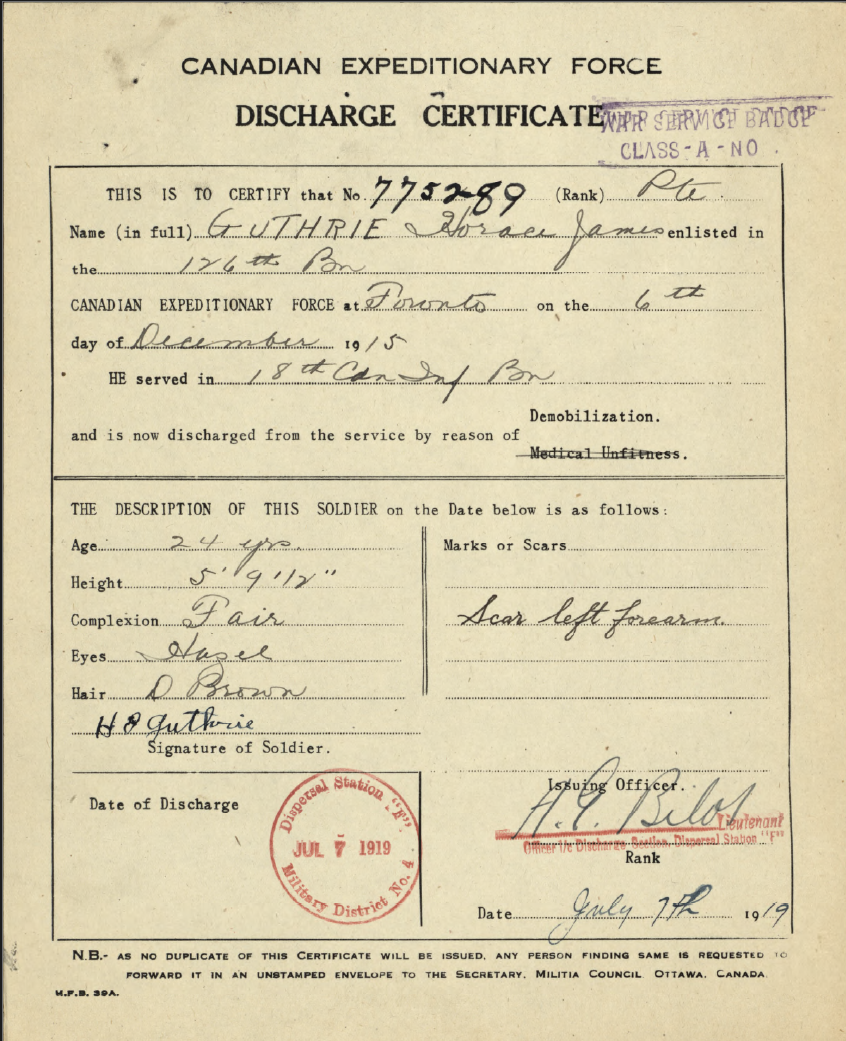 CANADIAN EXPEDITIONARY FORCE
DISCHARGE CERTIFICATE
WAR SERVICE BADGE
CLASS - A - NO
THIS IS TO CERTIFY that No. 775289 (Rank) Pte.
Name (in full) GUTHRIE Horace James enlisted in
the 126th Bn
CANADIAN EXPEDITIONARY FORCE at Toronto on the 6th
day of December 1915
HE served in 18th Can Inf Bn
Demobilization.
and is now discharged from the service by reason of
Medical Unfitness.
THE DESCRIPTION OF THIS SOLDIER on the Date below is as follows:
Age 24 yrs.
Height 5' 9 1/2"
Complexion Fair
Eyes Hazel
Hair D Brown
Marks or Scars
Scar left forearm.
H J Guthrie
Signature of Soldier.
Date of Discharge
Dispersal Station "F"
JUL 7 1919
Military District No. 4
Issuing Officer.
Lieutenant
Officer i/c Discharge Section, Dispersal Station "F"
Rank
Date July 7th 1919
N.B.- AS NO DUPLICATE OF THIS CERTIFICATE WILL BE ISSUED, ANY PERSON FINDING SAME IS REQUESTED TO
FORWARD IT IN AN UNSTAMPED ENVELOPE TO THE SECRETARY, MILITIA COUNCIL OTTAWA, CANADA.
M.F.B. 39A.